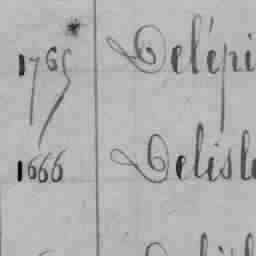 1765 Delépi
1666 Delisle